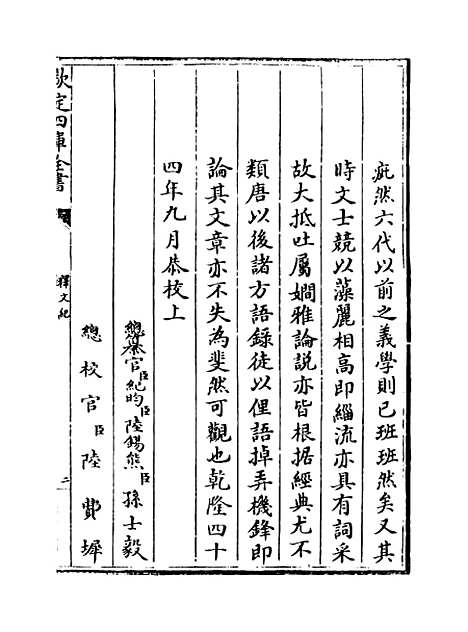 疵然六代以前之義學則已班班然矣又其
時文士競以藻麗相高即緇流亦具有詞采
故大抵吐屬嫻雅論說亦皆根据經典尤不
類唐以後諸方語錄徒以俚語掉弄機鋒即
論其文章亦不失為斐然可觀也乾隆四十
四年九月恭校上
總纂官臣紀昀臣陸錫熊臣孫士毅
總校官臣陸費墀
欽定四庫全書
釋文紀
二